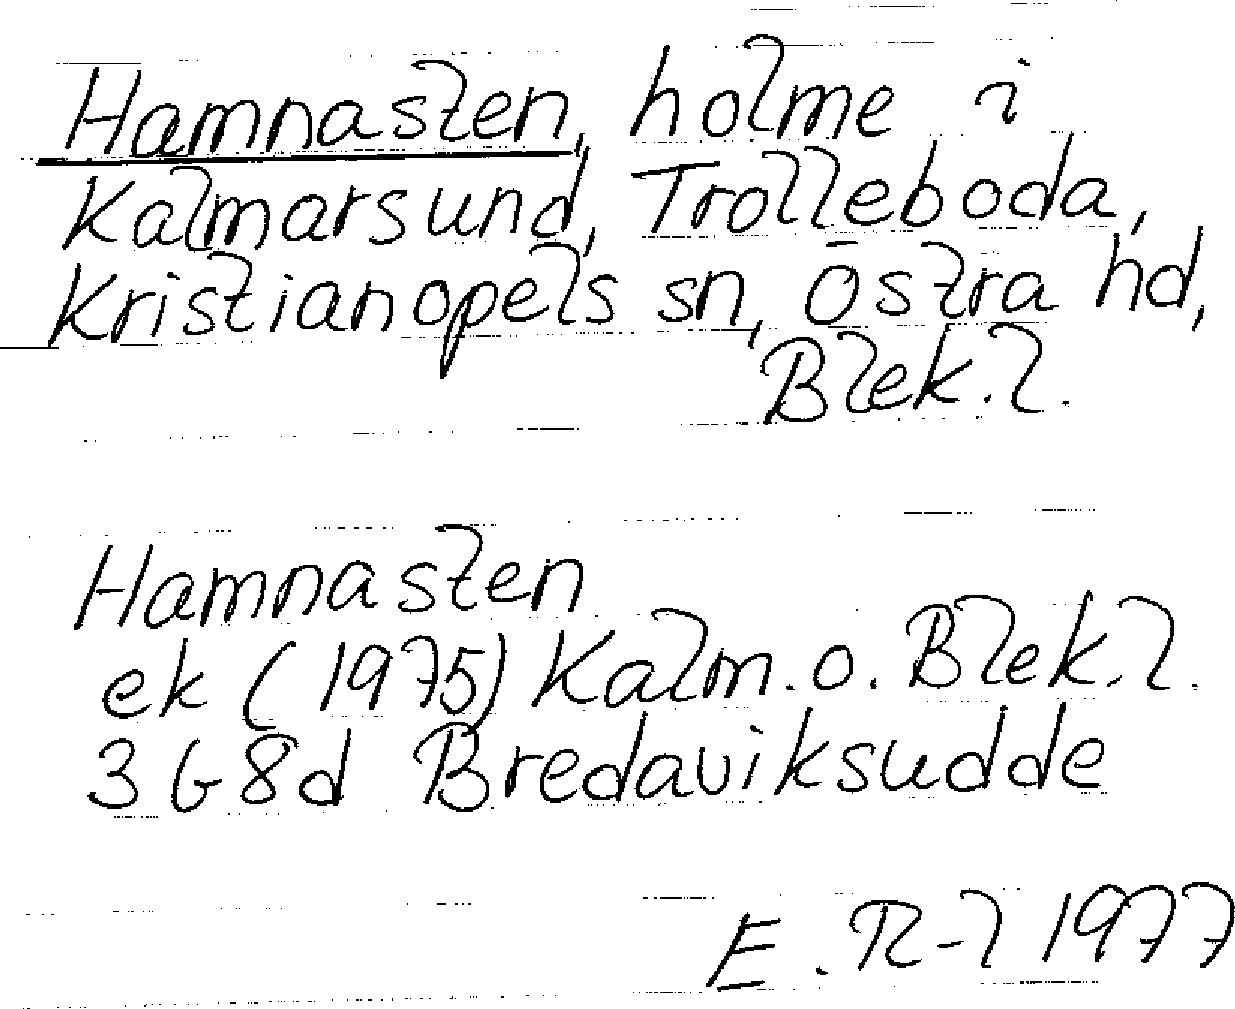 Hamnasten, holme i
Kalmarsund, Trolleboda,
Kristianopels sn, Östra hd,
Blek. l.
Hamnasten
ek (1975) Kalm. o. Blek. l.
3 G 8d Bredaviksudde
E. R-l 1977